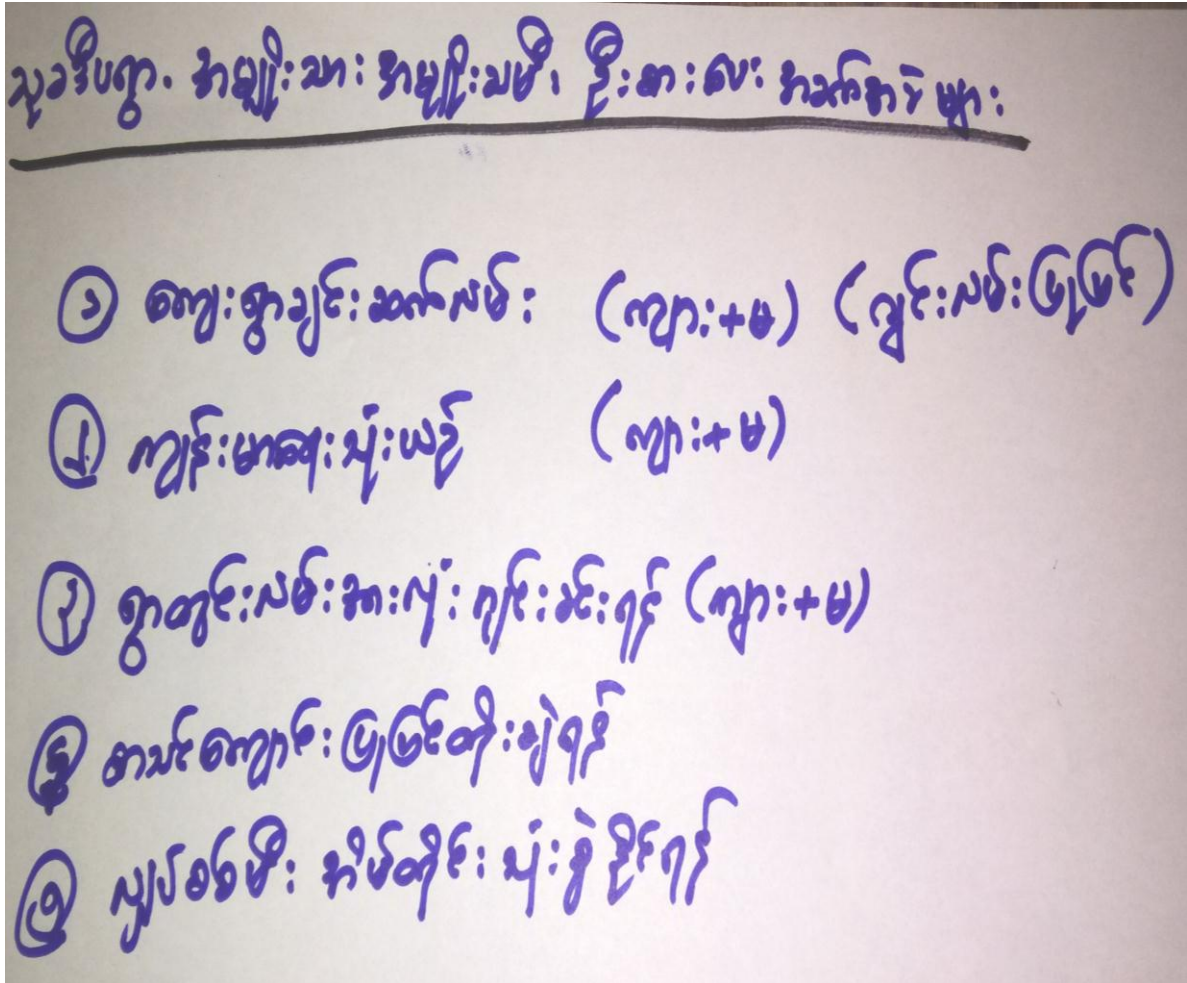 သုခဒီပရွာ၊ အမျိုးသား အမျိုးသမီး ဦးစားပေး အဆက်အစပ်များ
① ကျေးရွာချင်းဆက်လမ်း (ကျား+မ) (ကွင်းလမ်းပြုပြင်)
② ကျန်းမာရေးသုံးယဉ် (ကျား+မ)
③ ရွာတွင်းလမ်းအားလုံး ကျင်းခင်းရန် (ကျား+မ)
④ စာသင်ကျောင်းပြုပြင်တိုးချဲ့ရန်
⑤ လျှပ်စစ်မီး အိမ်တိုင်းသုံးစွဲနိုင်ရန်